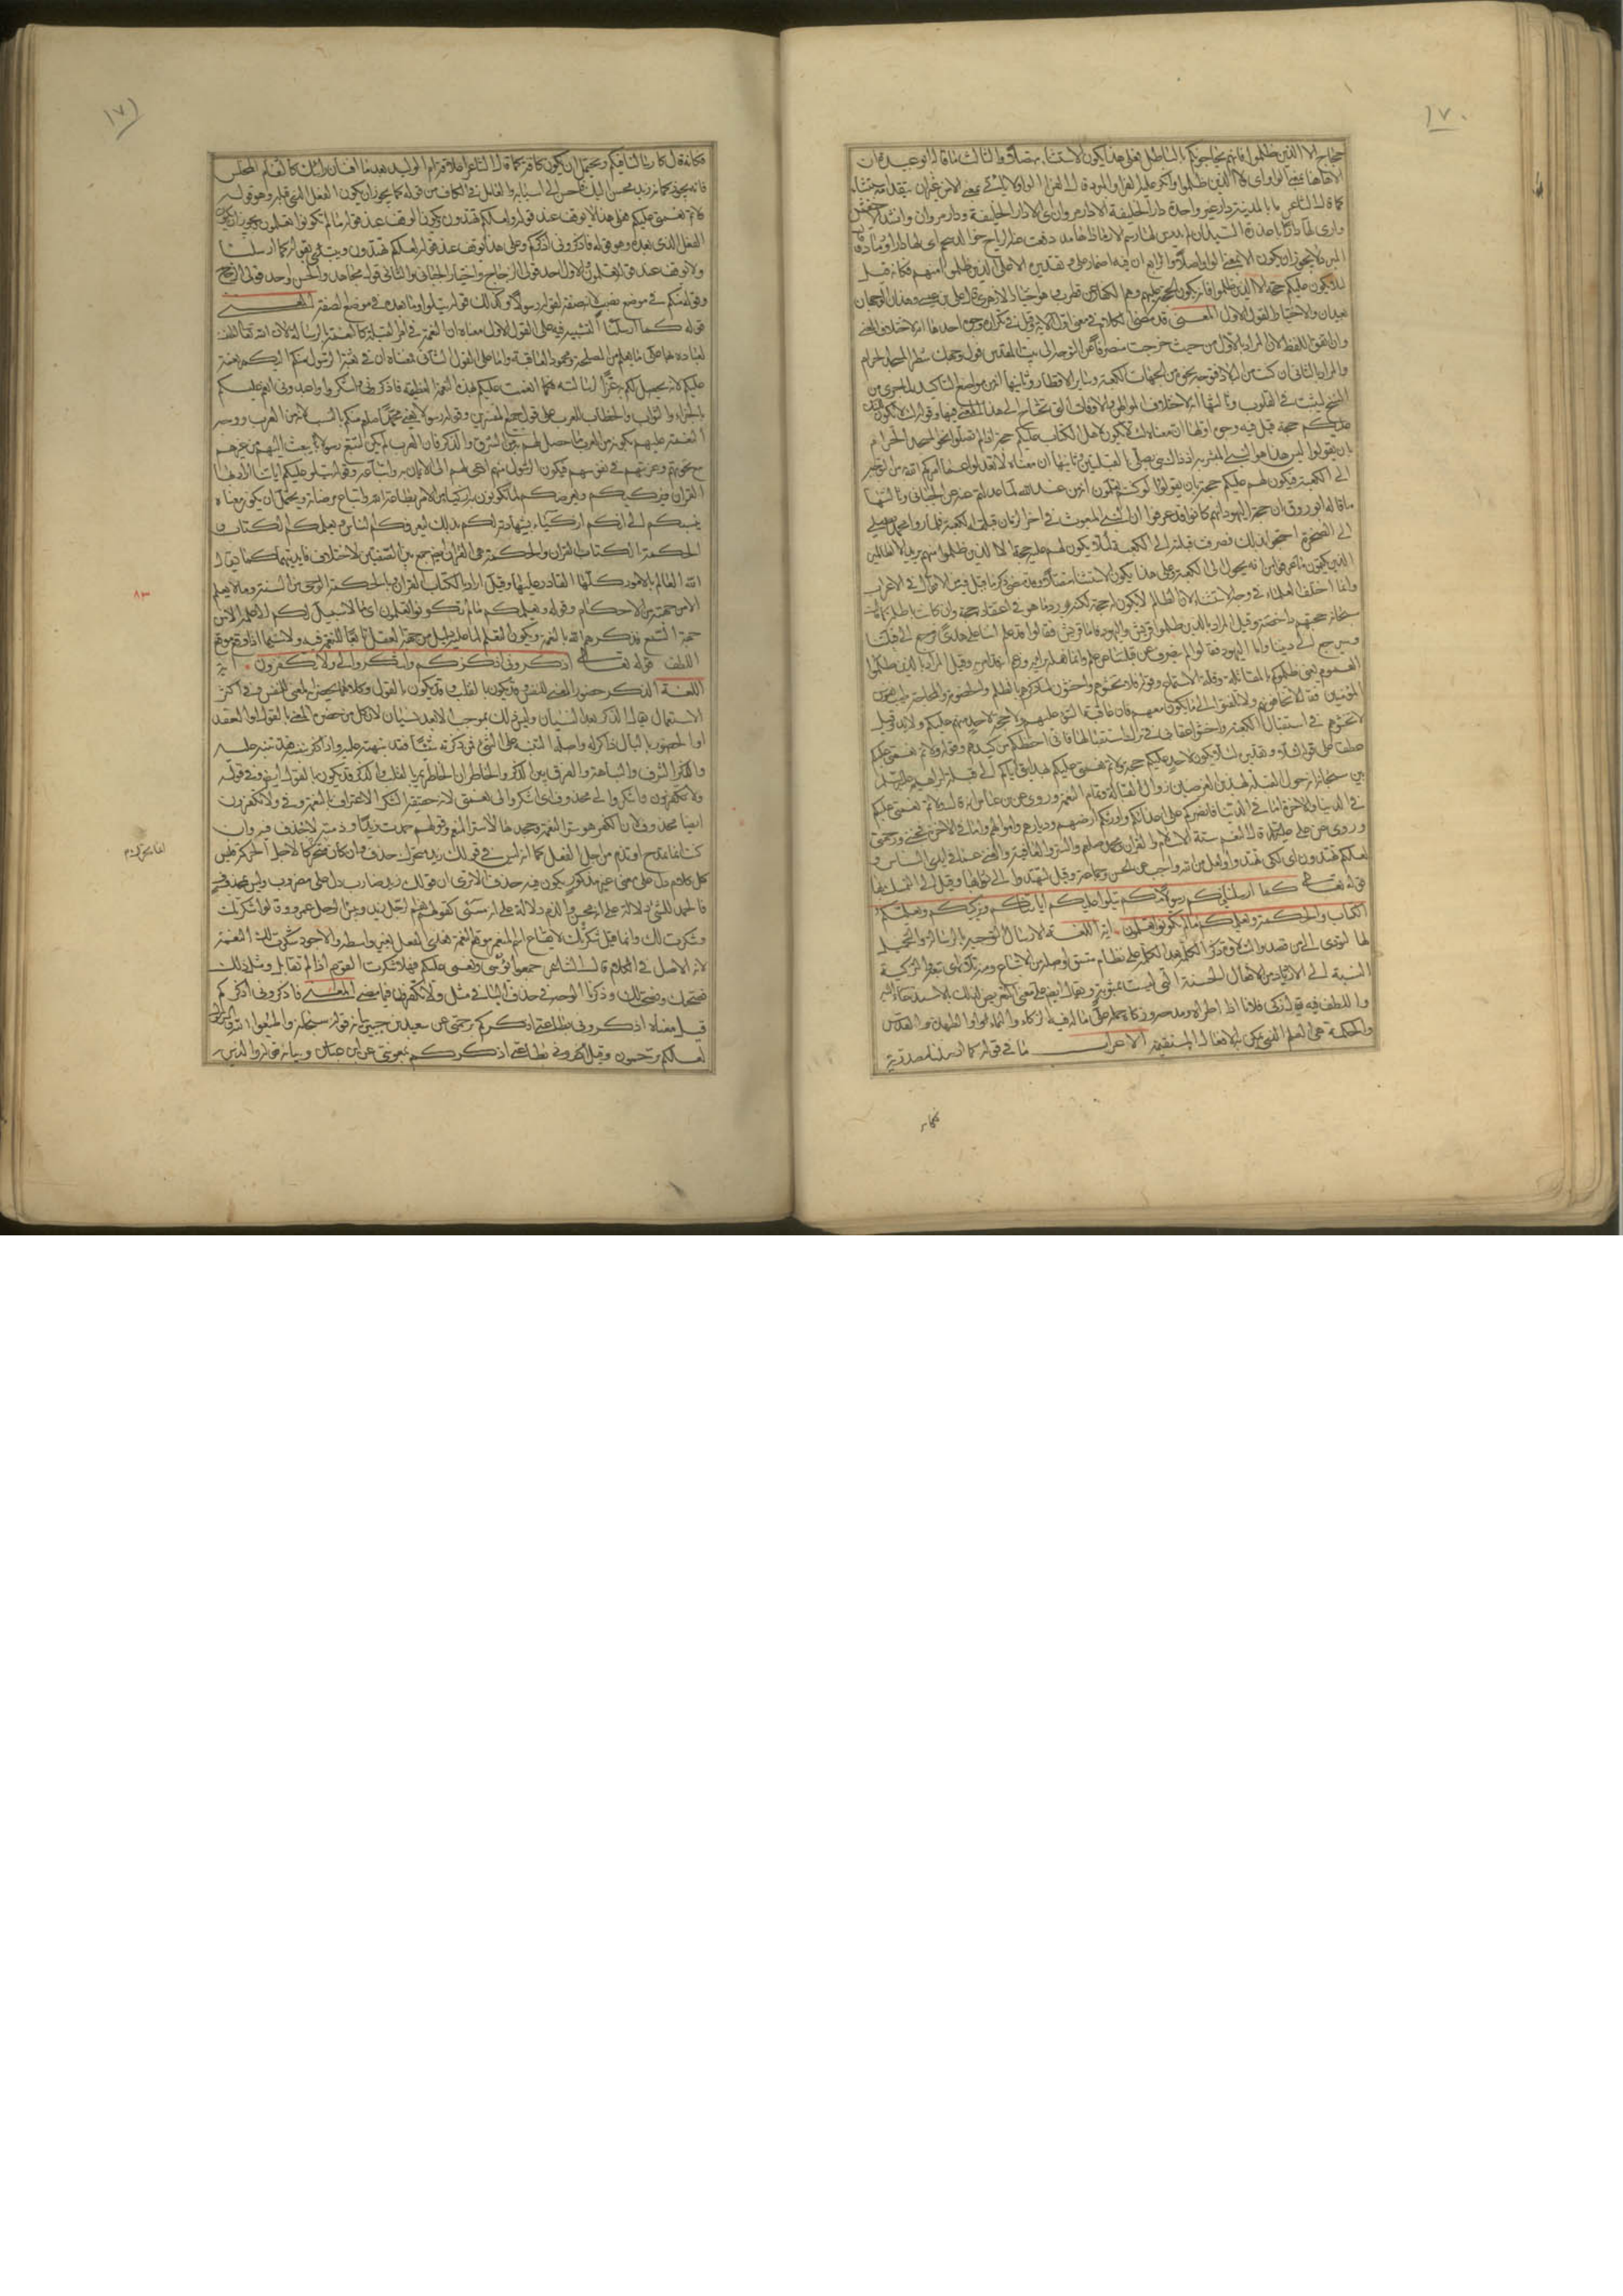 ١٧٠
حجاج الا الذين ظلموا فانهم يحاجونكم بالباطل فعلى هذا يكون الاستثناء متصلا والثالث ما قاله ابو عبيدة ان
الا هاهنا بمعنى الواو اى ولا الذين ظلموا وانكر عليه الفراء والمبرد قال الفراء الواو لا تأتي بمعنى الا من غير ان يتقدمه استثناء
كما قال الشاعر ما بالمدينة دار غير واحدة دار الخليفة الا دار مروان اى الا دار الخليفة ودار مروان وانشد الاخفش
وارى لها دارا باغدرة السيدان لم يدرس لها رسم الا رمادا هامدا دفعت عنه الرياح خوالد سحم اى ارى لها دارا ورمادا وقال
المبرد لا يجوز ان يكون الا بمعنى الواو اصلا والرابع ان فيه اضمار على وتقديره الا على الذين ظلموا منهم فكانه قال
لئلا يكون عليكم حجة الا على الذين ظلموا فانه يكون الحجة عليهم وهم الكفار عن قطرب وهو اختيار الازهري قال على بن عيسى وهذان الوجهان
بعيدان والاختيار القول الاول المعنى قد مضى الكلام في معنى اول الاية وقيل في تكراره وجوه احدها انه لاختلاف المعنى
وان اتفق اللفظ لان المراد بالاول من حيث خرجت منصرفا عن التوجه الى بيت المقدس فول وجهك شطر المسجد الحرام
والمراد بالثاني اين ما كنت من البلاد فتوجه نحوه من كل جهات الكعبة وساير الاقطار وثانيها انه من مواضع التاكيد لما جرى من
النسخ ليثبت في القلوب وثالثها انه لاختلاف المواطن والاوقات التي تحتاج الى هذا المعنى فيها وقوله لئلا يكون للناس
عليكم حجة قيل فيه وجوه اولها ان معناه لئلا يكون لاهل الكتاب عليكم حجة اذا لم تصلوا نحو المسجد الحرام
بان يقولوا ليس هذا هو النبي المبشر به اذ ذاك نبي يصلي الى القبلتين وثانيها ان معناه لا تعدلوا عما امركم الله من التوجه
الى الكعبة فيكون لهم عليكم حجة بان يقولوا لو كنتم تعلمون انه من عند الله لما عدلتم عنه عن الجبائي وثالثها
ما قاله ابو روق ان حجة اليهود انهم كانوا قد عرفوا ان النبي المبعوث في اخر الزمان قبلته الكعبة فلما راوا محمدا يصلي
الى الصخرة احتجوا بذلك فصرف قبلته الى الكعبة لئلا يكون لهم عليه حجة الا الذين ظلموا منهم يريد الا الظالمين
الذين يكتمون ما عرفوا من انه يحول الى الكعبة وعلى هذا يكون الاستثناء متصلا وقد مضى ذكر ما قيل فيه من الاقوال في الاعراب
وانما اختلف العلماء في وجه الاستثناء لان الظالم لا يكون له حجة لكنه يورد ما هو في اعتقاده حجة وان كانت باطلة كما قال
سبحانه حجتهم داحضة وقيل المراد بالذين ظلموا قريش واليهود فاما قريش فقالوا قد علم اننا على هدى فرجع الى قبلتنا
وسيرجع الى ديننا واما اليهود فقالوا لم ينصرف عن قبلتنا عن علم وانما فعله برأيه وزعم انه قد امر به وقيل المراد بالذين ظلموا
العموم يعني ظلموكم بالمقاتلة وقلة الاستماع وقوله فلا تخشوهم واخشوني لما ذكرهم بالظلم والخصومة والمحاجة طيب نفوس
المؤمنين فقال لا تخافوهم ولا تلتفتوا الى ما يكون منهم فان عاقبة السوء عليهم ولا حجة لاحد منهم عليكم ولا يد وقيل
لا تخشوهم في استقبال الكعبة واخشوا عقابي في ترك استقبالها فاني احفظكم من كيدهم وقوله ولاتم نعمتي عليكم
عطف على قوله لئلا وتقديره لئلا يكون لاحد عليكم حجة ولاتم نعمتي عليكم بهدايتي اياكم الى قبلة ابراهيم عليه السلام
بين سبحانه انه حول القبلة لهذين الغرضين زوال القالة وتمام النعمة وروى عن ابن عباس انه قال ولاتم نعمتي عليكم
في الدنيا والاخرة اما في الدنيا فانصركم على اعدائكم واورثكم ارضهم وديارهم واموالهم واما في الاخرة فجنتي ورحمتي
وروى عن على عليه السلام قال النعم ستة الاسلام والقرآن ومحمد صلعم والستر والعافية والغنى عما في ايدي الناس و
لعلكم تهتدون اى لكي تهتدوا ولعل من الله واجب عن الحسن وجماعة وقيل لتهتدوا الى ثوابها وقيل الى التمسك بها
قوله تعالى كما ارسلنا فيكم رسولا منكم يتلو عليكم اياتنا ويزكيكم ويعلمكم
الكتاب والحكمة ويعلمكم ما لم تكونوا تعلمون اية اللغة الارسال التوجيه بالرسالة والتحميل
لها ليؤدى الى من قصد والتلاوة ذكر الكلمة بعد الكلمة على نظام متسق واصله من الاتباع ومنه تلاه اى تبعه والتزكية
النسبة الى الازدياد من الافعال الحسنة التي ليست بمشوبة ويقال ايضا على معنى التعريض لذلك بالاستدعاء اليه
واللطف فيه يقال زكى فلان فلانا اذا اطراه ومدحه وزكاه حمله على ما له فيه الزكاء والنماء والطهارة والقدس
والحكمة هي العلم الذي يمكن به الافعال المستقيمة الاعراب ما في قوله كما ارسلنا مصدرية
فكانه
١٧١
فكانه قال كارسالنا فيكم ويحتمل ان يكون كافة كما قال الشاعر اعلاقة ام الوليد بعد ما افنان رأسك كالثغام المخلس
فانه يجوز كما زيد محسن اليك فاحسن الى ابنائه والعامل في الكاف من قوله كما يجوز ان يكون الفعل الذي قبله وهو قوله
ولاتم نعمتي عليكم فعلى هذا لا يوقف عند قوله ولعلكم تهتدون ويكون الوقف عند قوله ما لم تكونوا تعلمون ويجوز ان يكون
الفعل الذي بعده وهو قوله فاذكروني اذكركم وعلى هذا يوقف عند قوله لعلكم تهتدون ويبتدئ بقوله كما ارسلنا
ولا يوقف عند قوله تعلمون والاول احد قولي الزجاج واختيار الجبائي والثاني قول مجاهد والحسن واحد قولي الزجاج
وقوله منكم في موضع نصب لانه صفة لقوله رسولا وكذلك قوله يتلوا وما بعده في موضع الصفة المعنى
قوله كما ارسلنا التشبيه فيه على القول الاول معناه ان النعمة في امر القبلة كالنعمة بالرسالة لان الله تعالى لطف
لعباده بها على ما يعلم من المصلحة ومحمود العاقبة واما على القول الثاني فمعناه ان في بعثة الرسول منكم اليكم نعمة
عليكم لانه يحصل لكم به عز الرسالة فكما انعمت عليكم بهذه النعمة العظيمة فاذكروني واشكروا لي واعبدوني انعم عليكم
بالجزاء والثواب والخطاب للعرب على قول جميع المفسرين وقوله رسولا يعني محمدا صلعم منكم بالنسب لانه من العرب ووجه
النعمة عليهم بكونه من العرب ما حصل لهم به من الشرف والذكر وان العرب لم يكن لتتبع رسولا يبعث اليهم من غيرهم
مع نخوتهم وعزتهم في نفوسهم فيكون الرسول منهم ادعى لهم الى الايمان به واتباعه وقوله يتلو عليكم اياتنا اراد بها
القرآن ويزكيكم ويعرضكم لما تكونون به ازكياء من الامر بطاعة الله واتباع مرضاته ويحتمل ان يكون معناه
ينسبكم الى انكم ازكياء بشهادته لكم بذلك ليعرفكم الناس به ويعلمكم الكتاب و
الحكمة الكتاب القرآن والحكمة هي القرآن ايضا جمع بين الصفتين لاختلاف فايدتهما كما يقال
الله العالم بالامور كلها القادر عليها وقيل اراد بالكتاب القرآن وبالحكمة الوحي من السنة وما لا يعلم
الا من جهته من الاحكام وقوله ويعلمكم ما لم تكونوا تعلمون اى ما لا سبيل لكم الى علمه الا من
جهة السمع فذكرهم الله بالنعمة فيه ويكون التعليم لما عليه دليل من جهة العقل تابعا للنعمة فيه ولا سيما اذا وقع موقع
اللطف قوله تعالى اذكروني اذكركم واشكروا لي ولا تكفرون اية
اللغة الذكر حضور المعنى للنفس وقد يكون بالقلب وقد يكون بالقول وكلاهما يحضر به المعنى للنفس وفي اكثر
الاستعمال يقال الذكر بعد النسيان وليس ذلك بموجب الا بعد نسيان لان كل من حضره المعنى بالقول او العقد
او الحضور بالبال ذاكر له واصله التنبه على الشيء فمن ذكرته شيئا فقد نبهته عليه واذا ذكر بنفسه فقد تنبه عليه
والذكر الشرف والنباهة والفرق بين الذكر والخاطر ان الخاطر ما يمر بالقلب والذكر قد يكون بالقول ايضا وفي قوله
ولا تكفرون واشكروا لي محذوف اى اشكروا لي نعمتي لان حقيقة الشكر الاعتراف بالنعمة وفي ولا تكفرون
ايضا محذوف لان الكفر هو ستر النعمة وجحدها لا ستر المنعم وقولهم حمدت زيدا وذممته لا حذف فيه وان
كنت انما تمدح او تذم من اجل الفعل كما انه ليس في قولك زيد متحرك حذف وان كان متحركا لاجل الحركة فليس
كل كلام دل على معنى غير مذكور يكون فيه حذف الا ترى ان قولك زيد ضارب دل على مضروب وليس بمحذوف
فالحمد للشيء دلالة على انه محسن والذم دلالة على انه مسيئ كقولهم نعم الرجل زيد وبئس الرجل عمرو وقالوا شكرتك
وشكرت لك وانما قيل شكرتك لايقاع اسم المنعم موقع النعمة فعدى الفعل بغير واسطة والاجود شكرت لك النعمة
لانه الاصل في الكلام قال الشاعر هم جمعوا بؤسى ونعمى عليكم فهلا شكرت القوم اذ لم تقاتل ومثل ذلك
نصحتك ونصحت لك وذكرنا الوجه في حذف الياء في مثل ولا تكفرون فيما مضى المعنى فاذكروني اذكركم
قيل معناه اذكروني بطاعتي اذكركم برحمتي عن سعيد بن جبير بيانه قوله سبحانه واطيعوا الله والرسول
لعلكم ترحمون وقيل اذكروني بطاعتي اذكركم بمعونتي عن ابن عباس وبيانه قوله والذين
٨٣